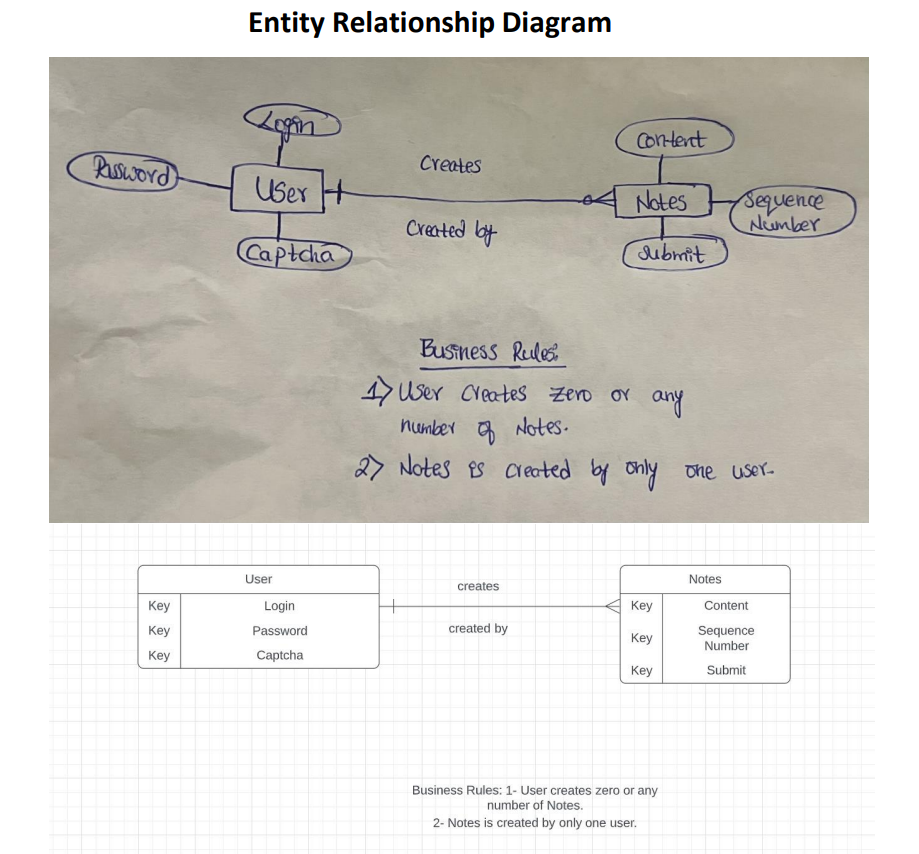 Entity Relationship Diagram
Login
Password
User
Captcha
Creates
Created by
Content
Notes
Sequence
Number
Submit
Business Rules:
1) User Creates zero or any
number of Notes.
2) Notes is created by only one user.
User
Key Login
Key Password
Key Captcha
creates
created by
Notes
Key Content
Key Sequence
Number
Key Submit
Business Rules: 1- User creates zero or any
number of Notes.
2- Notes is created by only one user.